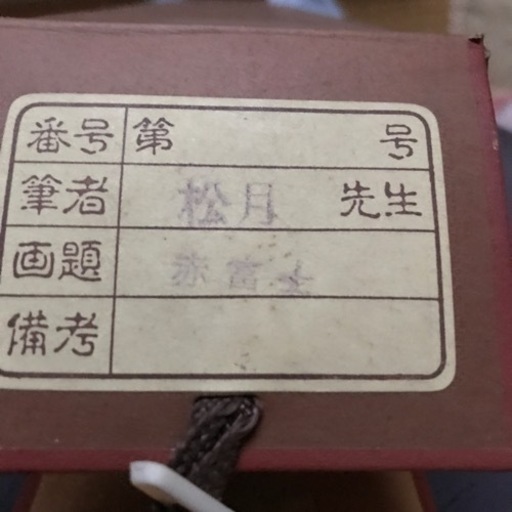 番号 第 号
筆者 松月 先生
画題 赤富士
備考